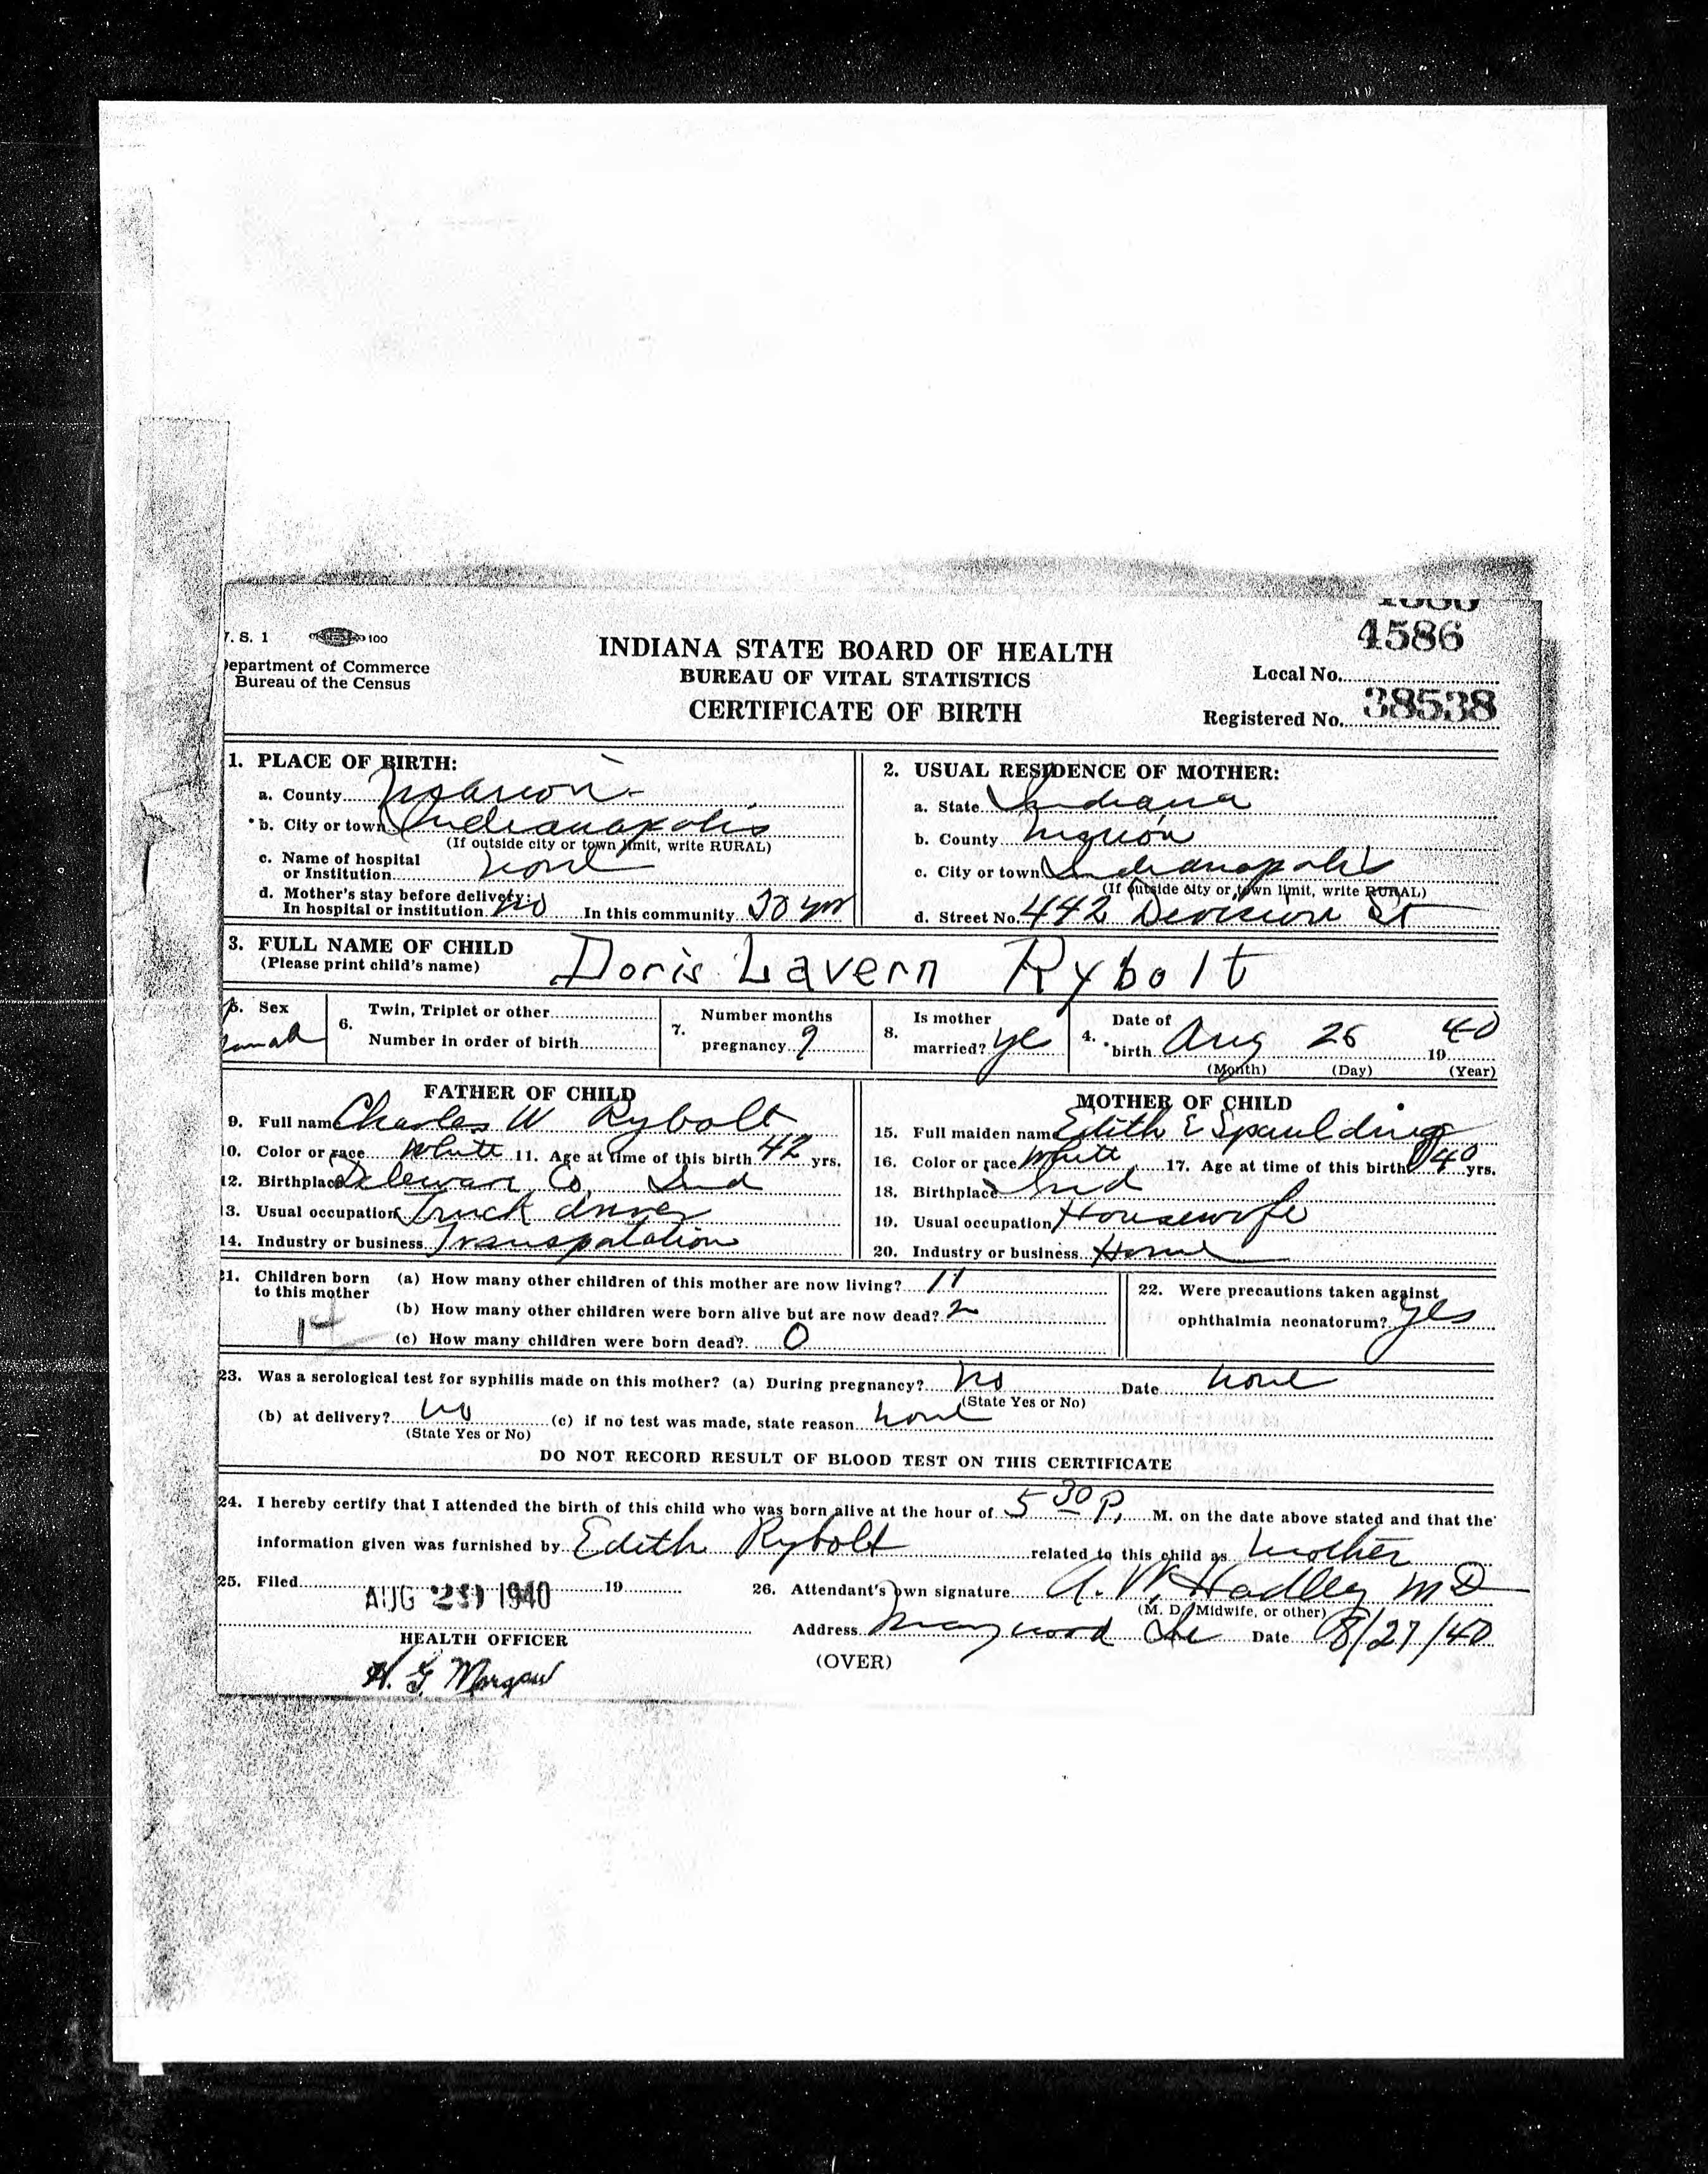 V. S. 1 100
Department of Commerce
Bureau of the Census
INDIANA STATE BOARD OF HEALTH
BUREAU OF VITAL STATISTICS
CERTIFICATE OF BIRTH
4586
Local No.
Registered No. 38538
1. PLACE OF BIRTH:
a. County Marion
*b. City or town Indianapolis
(If outside city or town limit, write RURAL)
c. Name of hospital
or Institution none
d. Mother's stay before delivery:
In hospital or institution no In this community 30 yrs
2. USUAL RESIDENCE OF MOTHER:
a. State Indiana
b. County Marion
c. City or town Indianapolis
(If outside city or town limit, write RURAL)
d. Street No. 442 Division St
3. FULL NAME OF CHILD Doris Lavern Rybolt
(Please print child's name)
5. Sex
6. Twin, Triplet or other
Number in order of birth
7. Number months
pregnancy 9
8. Is mother
married? ye
4. Date of
*birth Aug 26 1940
(Month) (Day) (Year)
FATHER OF CHILD
9. Full name Charles W Rybolt
10. Color or race White 11. Age at time of this birth 42 yrs.
12. Birthplace Deleware Co, Ind
13. Usual occupation Truck driver
14. Industry or business Transpatation
MOTHER OF CHILD
15. Full maiden name Edith E Spaulding
16. Color or race White 17. Age at time of this birth 40 yrs.
18. Birthplace Ind
19. Usual occupation Housewife
20. Industry or business Home
21. Children born
to this mother
14
(a) How many other children of this mother are now living? 11
(b) How many other children were born alive but are now dead? 2
(c) How many children were born dead? 0
22. Were precautions taken against
ophthalmia neonatorum? yes
23. Was a serological test for syphilis made on this mother? (a) During pregnancy? no Date none
(State Yes or No)
(b) at delivery? no (c) if no test was made, state reason none
(State Yes or No)
DO NOT RECORD RESULT OF BLOOD TEST ON THIS CERTIFICATE
24. I hereby certify that I attended the birth of this child who was born alive at the hour of 5 30 P. M. on the date above stated and that the
information given was furnished by Edith Rybolt related to this child as Mother
25. Filed AUG 1940 19
HEALTH OFFICER
H. G. Morgan
26. Attendant's own signature A. W. Hadley MD
(M. D., Midwife, or other)
Address Maywood Date 8/27/40
(OVER)